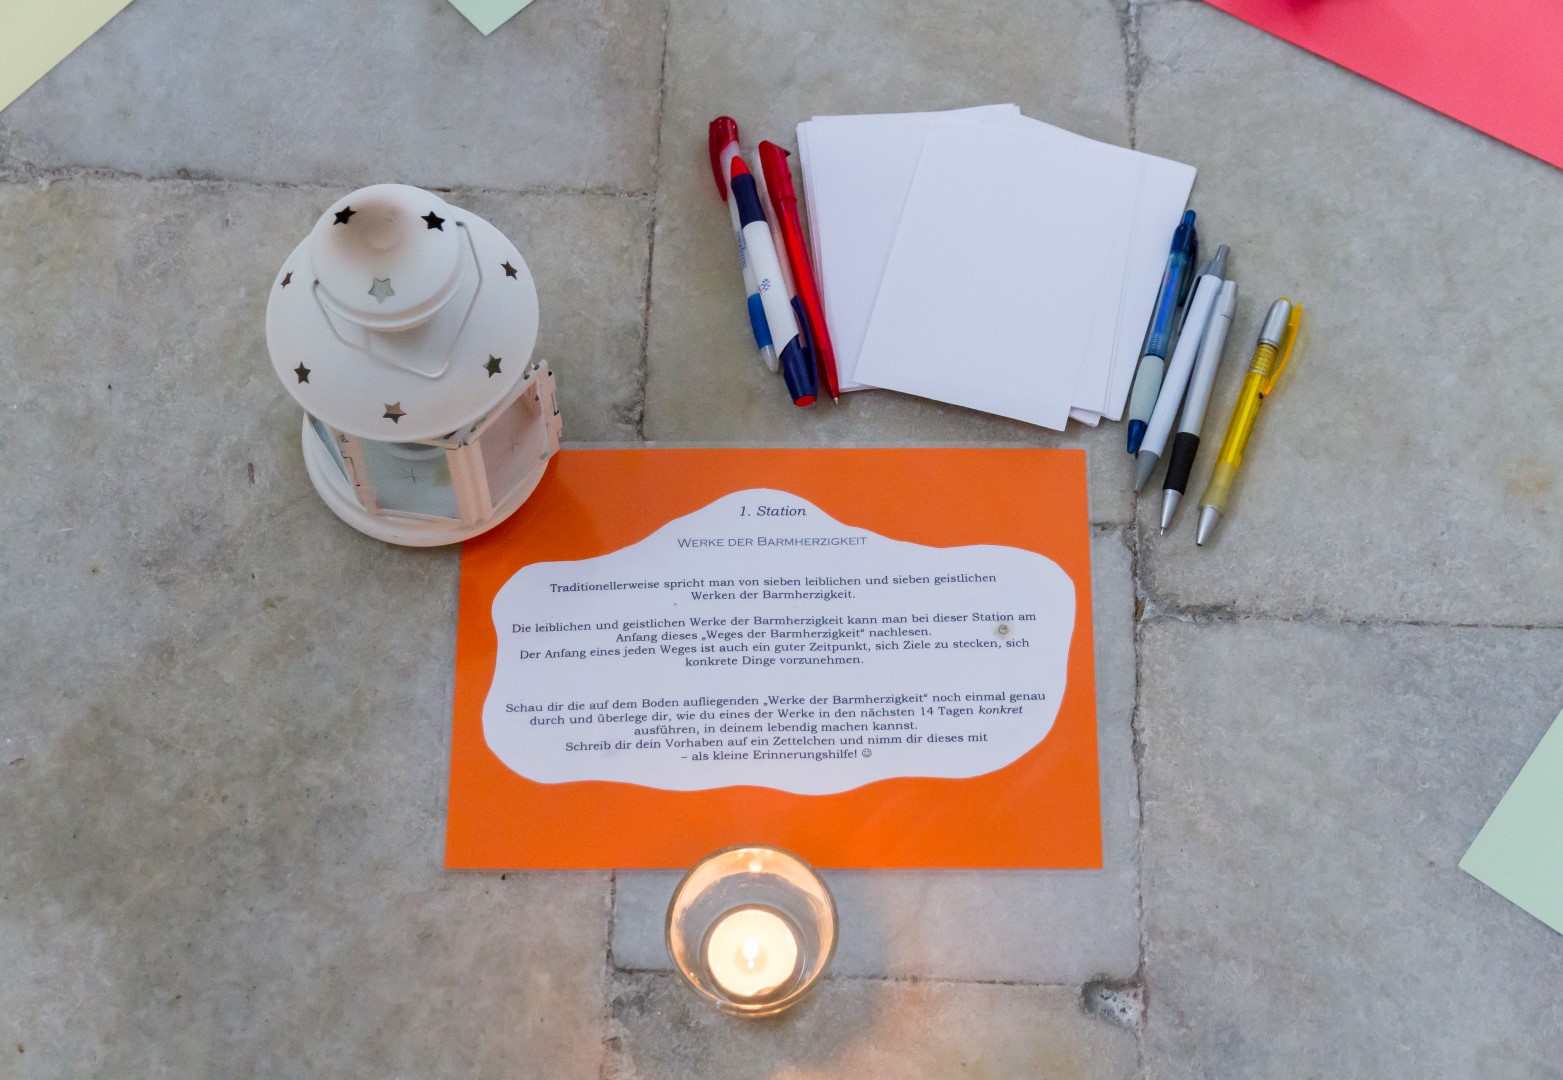 1. Station
WERKE DER BARMHERZIGKEIT
Traditionellerweise spricht man von sieben leiblichen und sieben geistlichen
Werken der Barmherzigkeit.
Die leiblichen und geistlichen Werke der Barmherzigkeit kann man bei dieser Station am
Anfang dieses „Weges der Barmherzigkeit“ nachlesen.
Der Anfang eines jeden Weges ist auch ein guter Zeitpunkt, sich Ziele zu stecken, sich
konkrete Dinge vorzunehmen.
Schau dir die auf dem Boden aufliegenden „Werke der Barmherzigkeit“ noch einmal genau
durch und überlege dir, wie du eines der Werke in den nächsten 14 Tagen konkret
ausführen, in deinem lebendig machen kannst.
Schreib dir dein Vorhaben auf ein Zettelchen und nimm dir dieses mit
– als kleine Erinnerungshilfe! ☺